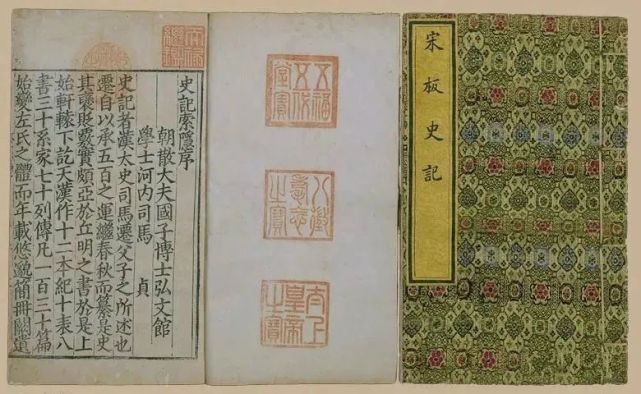 宋板史記
五福
五代
堂寶
八徵
耄念
之寶
太上
皇帝
之寶
天祿
繼鑑
史記索隱序
朝散大夫國子博士弘文館
學士河內司馬 貞
史記者漢太史司馬遷父子之所述也
遷自以承五百之運繼春秋而纂是史
其襃貶覈實頗亞於丘明之書於是上
始軒轅下訖天漢作十二本紀十表八
書三十系家七十列傳凡一百三十篇
始變左氏之體而年載悠邈簡冊闕遺